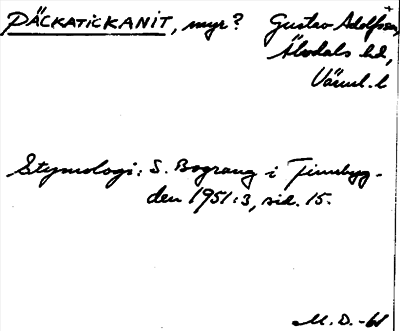 PÄCKATICKANIT, myr? Gustav Adolfs sn,
Älvdals hd,
Värml. l
Etymologi: S. Bograng i Finnbyg-
den 1951:3, sid. 15.
M.D. -61